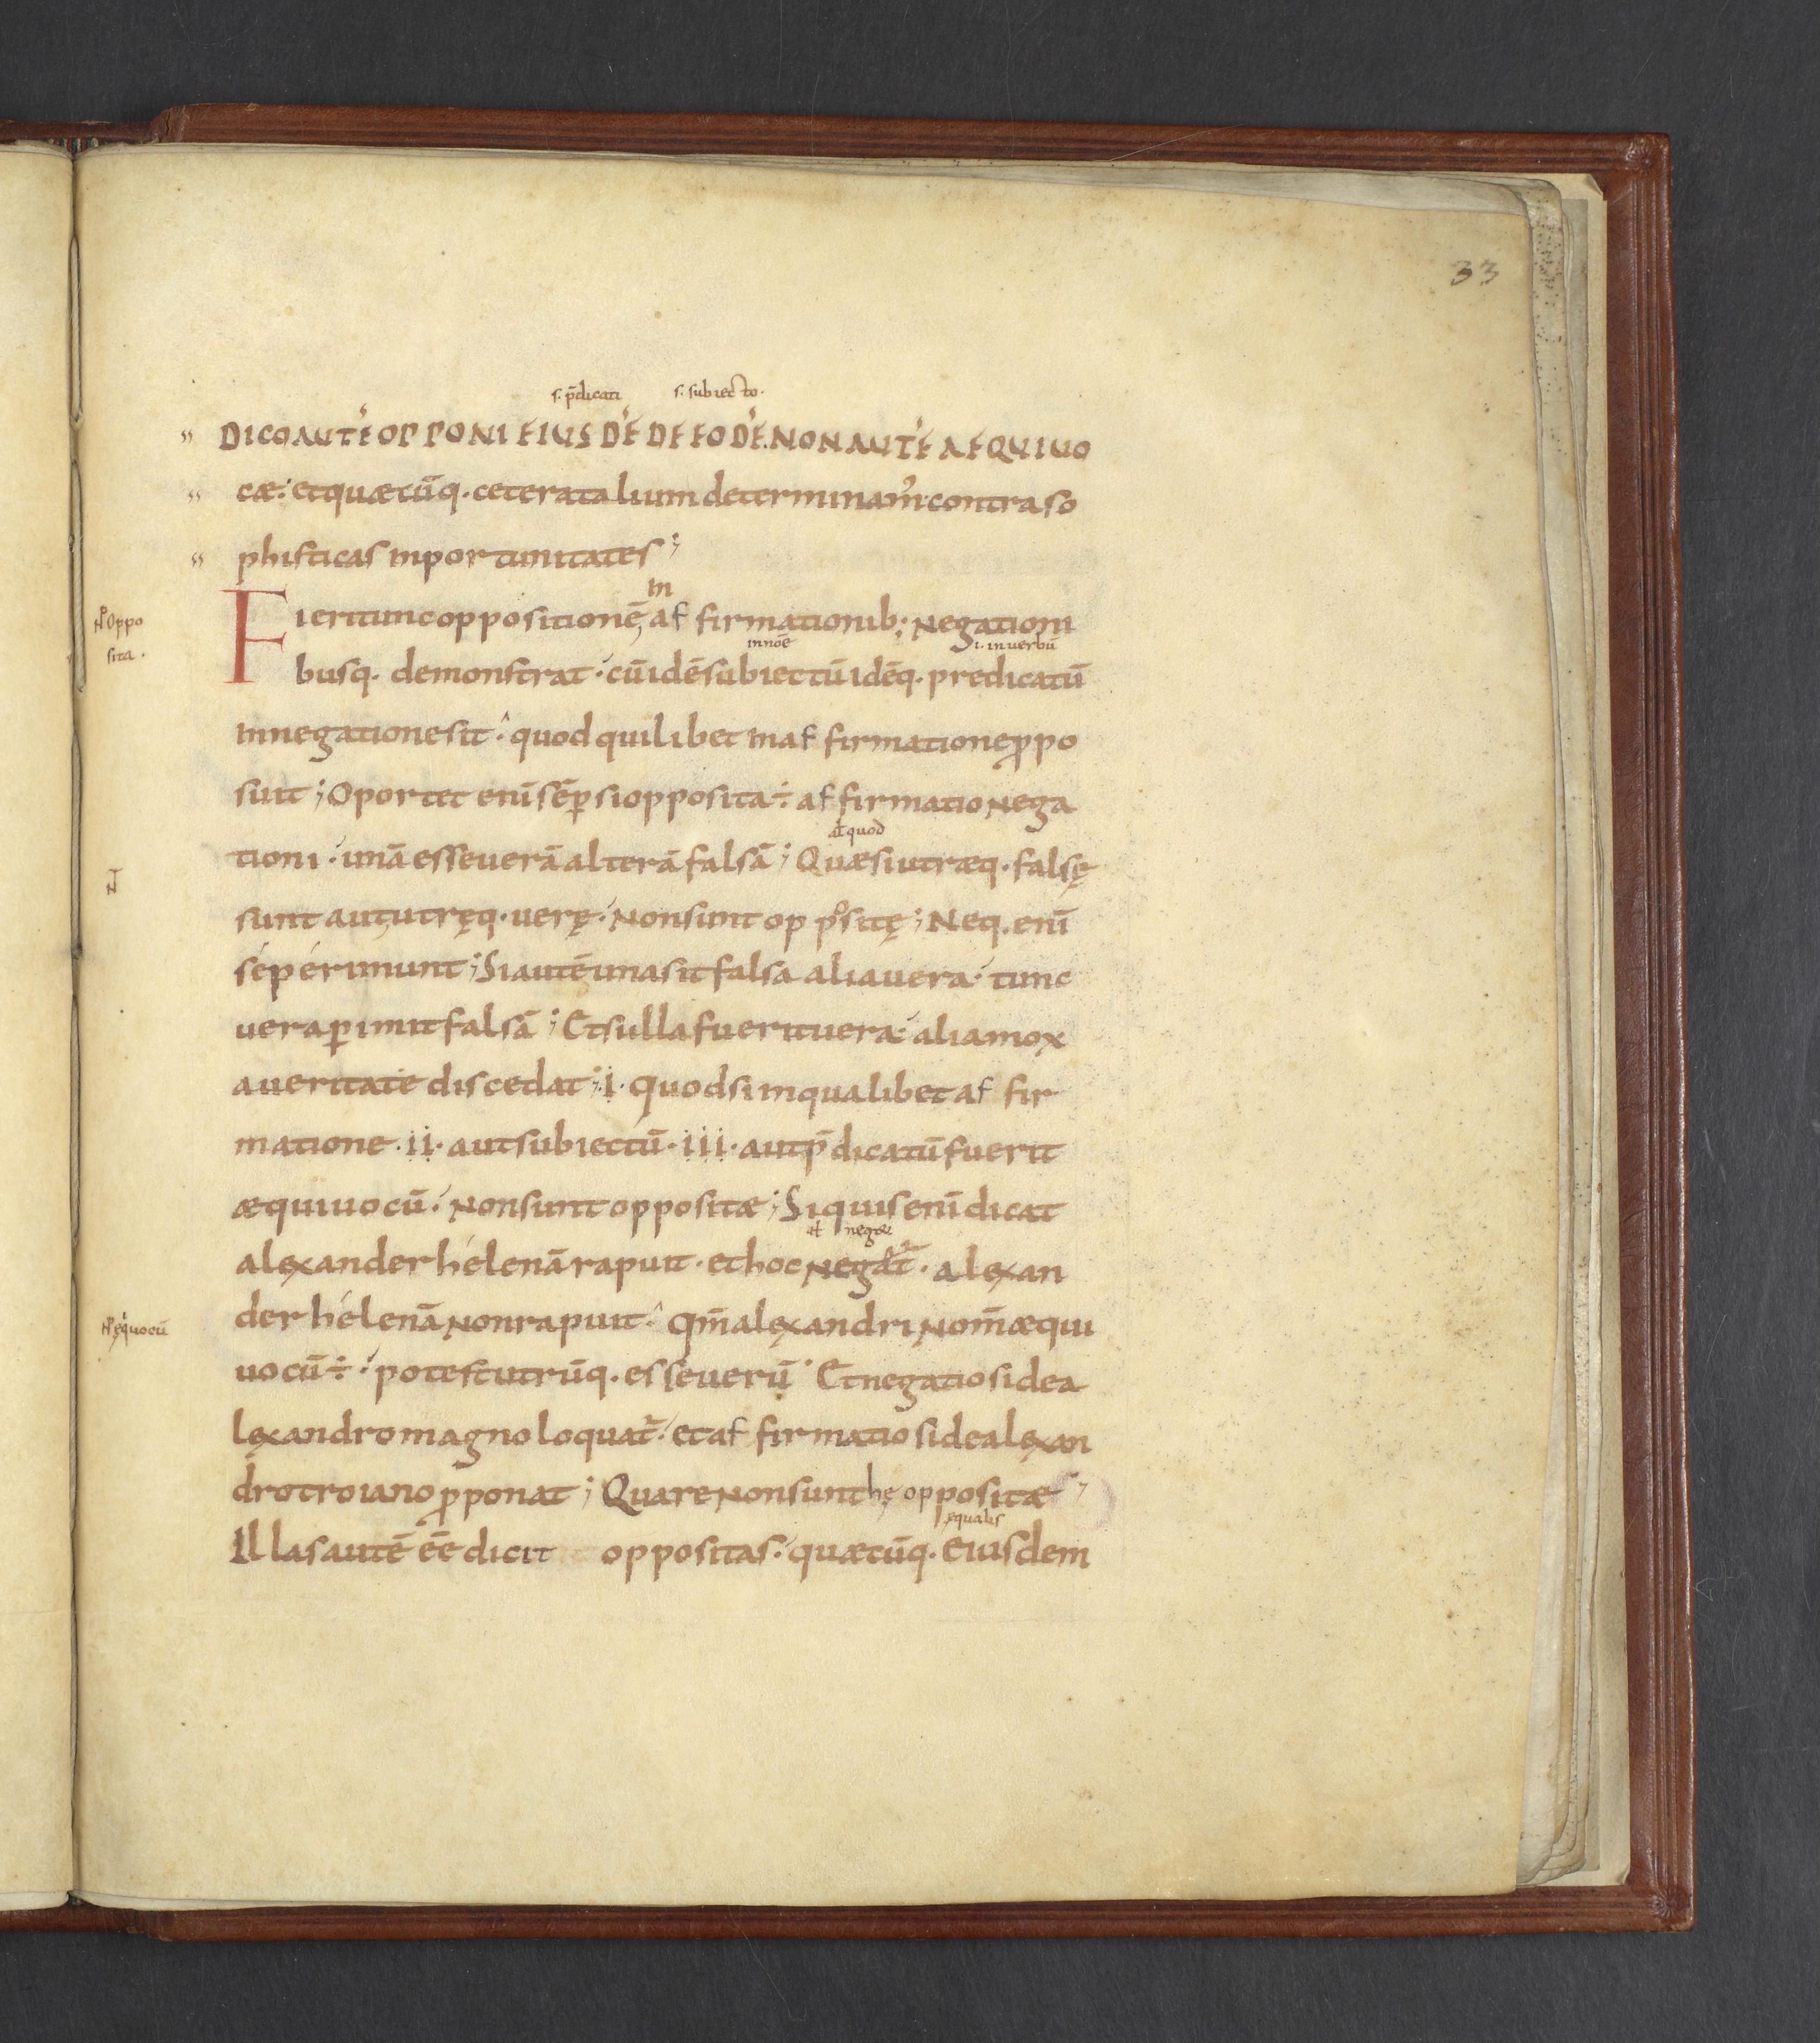 33
s. p̄dicati s. subiecto.
DICO AUTĒ OPPONI EIUSDĒ DE EODĒ. NON AUTĒ AEQUIUO
cæ. et quæcūq. cetera talium determinam᾽. contra so
phisticas inportunitates;
in
Fieri tunc oppositionē, affirmationib; negationi
N̄ Oppo
sita.
in noē i. in uerbū
busq. demonstrat. cū idē subiectū idēq. predicatū
in negatione sit. quod quilibet in affirmatione ꝓpo
suit; Oportet enī sēꝑ si opposita ÷ affirmatio nega
aƚ quod
tioni. unā esse uerā alterā falsā; Quæ si utræq. falsę
N̄
sunt aut utręq. uerę. non sunt oppositę; Neq. enī
sé périmunt; Si autē una sit falsa alia uera. tunc
uera ꝑimit falsā; Et si illa fuerit uera. alia mox
a ueritate discedat; i. Quod si in qualibet affir
matione .ii. aut subiectū .iii. aut p̄dicatū fuerit
æquiuocū. non sunt oppositæ; Si quis enī dicat
aƚ negæ
alexander hélenā rapuit. et hoc negat̄. alexan
der hélenā non rapuit. qm̄ alexandri nom̄ æqui
N̄ ęquocū
uocū ÷. potest utrūq. esse uerū. Et negatio si de a
lexandro magno loquat̄. et affirmatio si de alexan
dro troiano ꝓponat; Quare non sunt hę oppositæ;
ęqualis
Illas autē ēē dicit oppositas. quæcūq. eiusdem